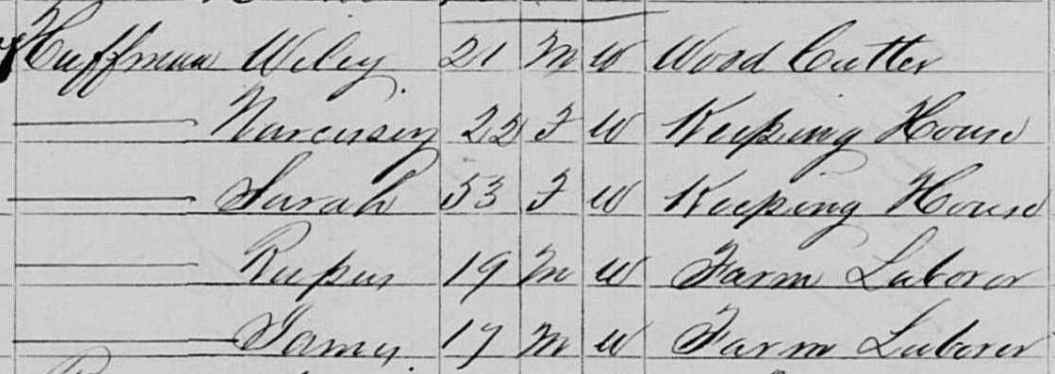 Huffman Wiley 21 M W Wood Cutter
Narcissey 22 F W Keeping House
Sarah 53 F W Keeping House
Rufus 19 M W Farm Laborer
James 17 M W Farm Laborer